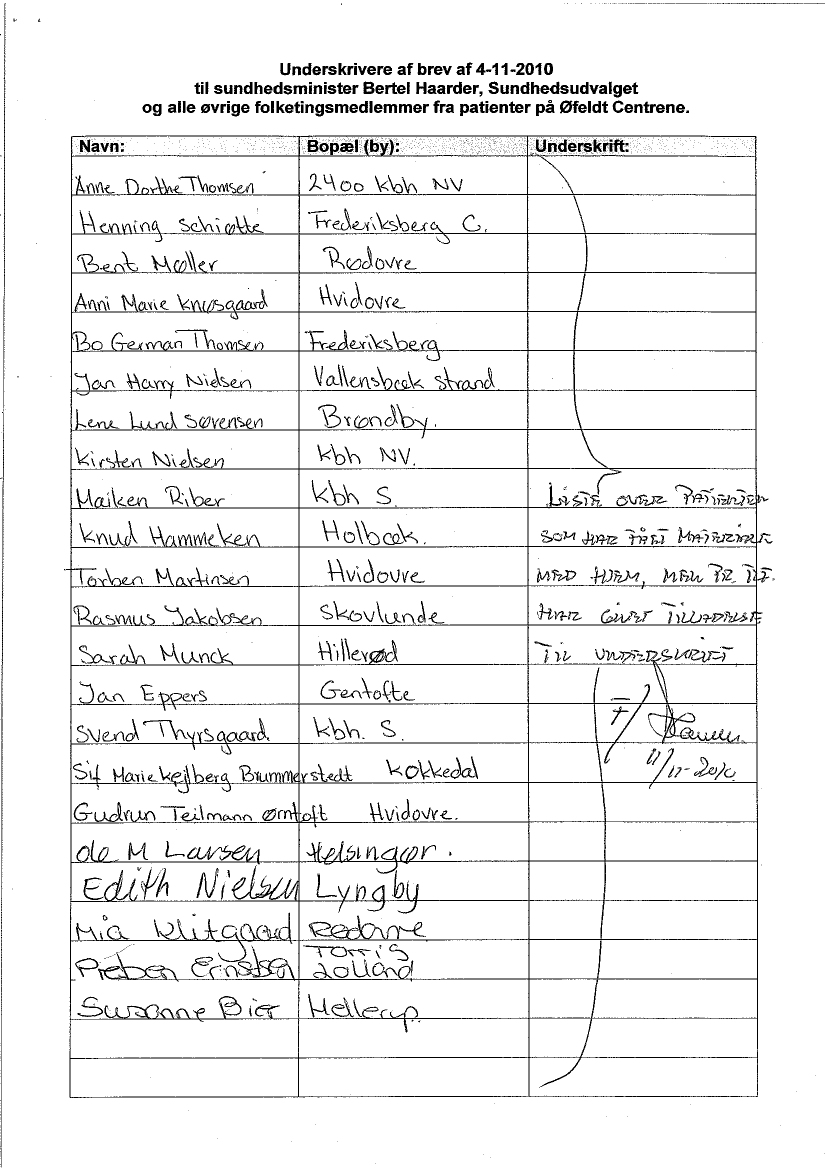 Underskrivere af brev af 4-11-2010
til sundhedsminister Bertel Haarder, Sundhedsudvalget
og alle øvrige folketingsmedlemmer fra patienter på Øfeldt Centrene.
Navn: Bopæl (by): Underskrift:
Anne Dorthe Thomsen 2400 Kbh NV
Henning Schiøtte Frederiksberg C.
Bent Møller Rødovre
Anni Marie Knusgaard Hvidovre
Bo German Thomsen Frederiksberg
Jan Harry Nielsen Vallensbæk strand
Lene Lund Sørensen Brøndby.
Kirsten Nielsen Kbh NV.
Maiken Riber Kbh S. LISTE OVER PATIENTER
Knud Hammeken Holbæk. SOM HAR FÅET MATERIALE
Torben Martinsen Hvidovre MED HJEM, MEN PR TLF.
Rasmus Jakobsen Skovlunde HAR GIVET TILLADELSE
Sarah Munck Hillerød TIL UNDERSKRIFT
Jan Eppers Gentofte
Svend Thyrsgaard Kbh. S.
Sif Marie Kejlberg Brummerstedt Kokkedal 11/11-2010
Gudrun Teilmann Ørntoft Hvidovre.
Ole M Larsen Helsingør.
Edith Nielsen Lyngby
Mia Klitgaard Rødovre
Preben
Susanne Bier Hellerup.